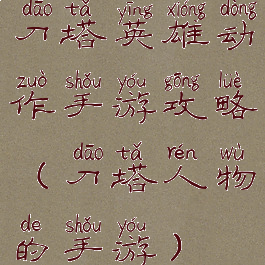 dāo tǎ yīng xióng dòng
刀塔英雄动
zuò shǒu yóu gōng lüè
作手游攻略
dāo tǎ rén wù
（刀塔人物
de shǒu yóu
的手游）